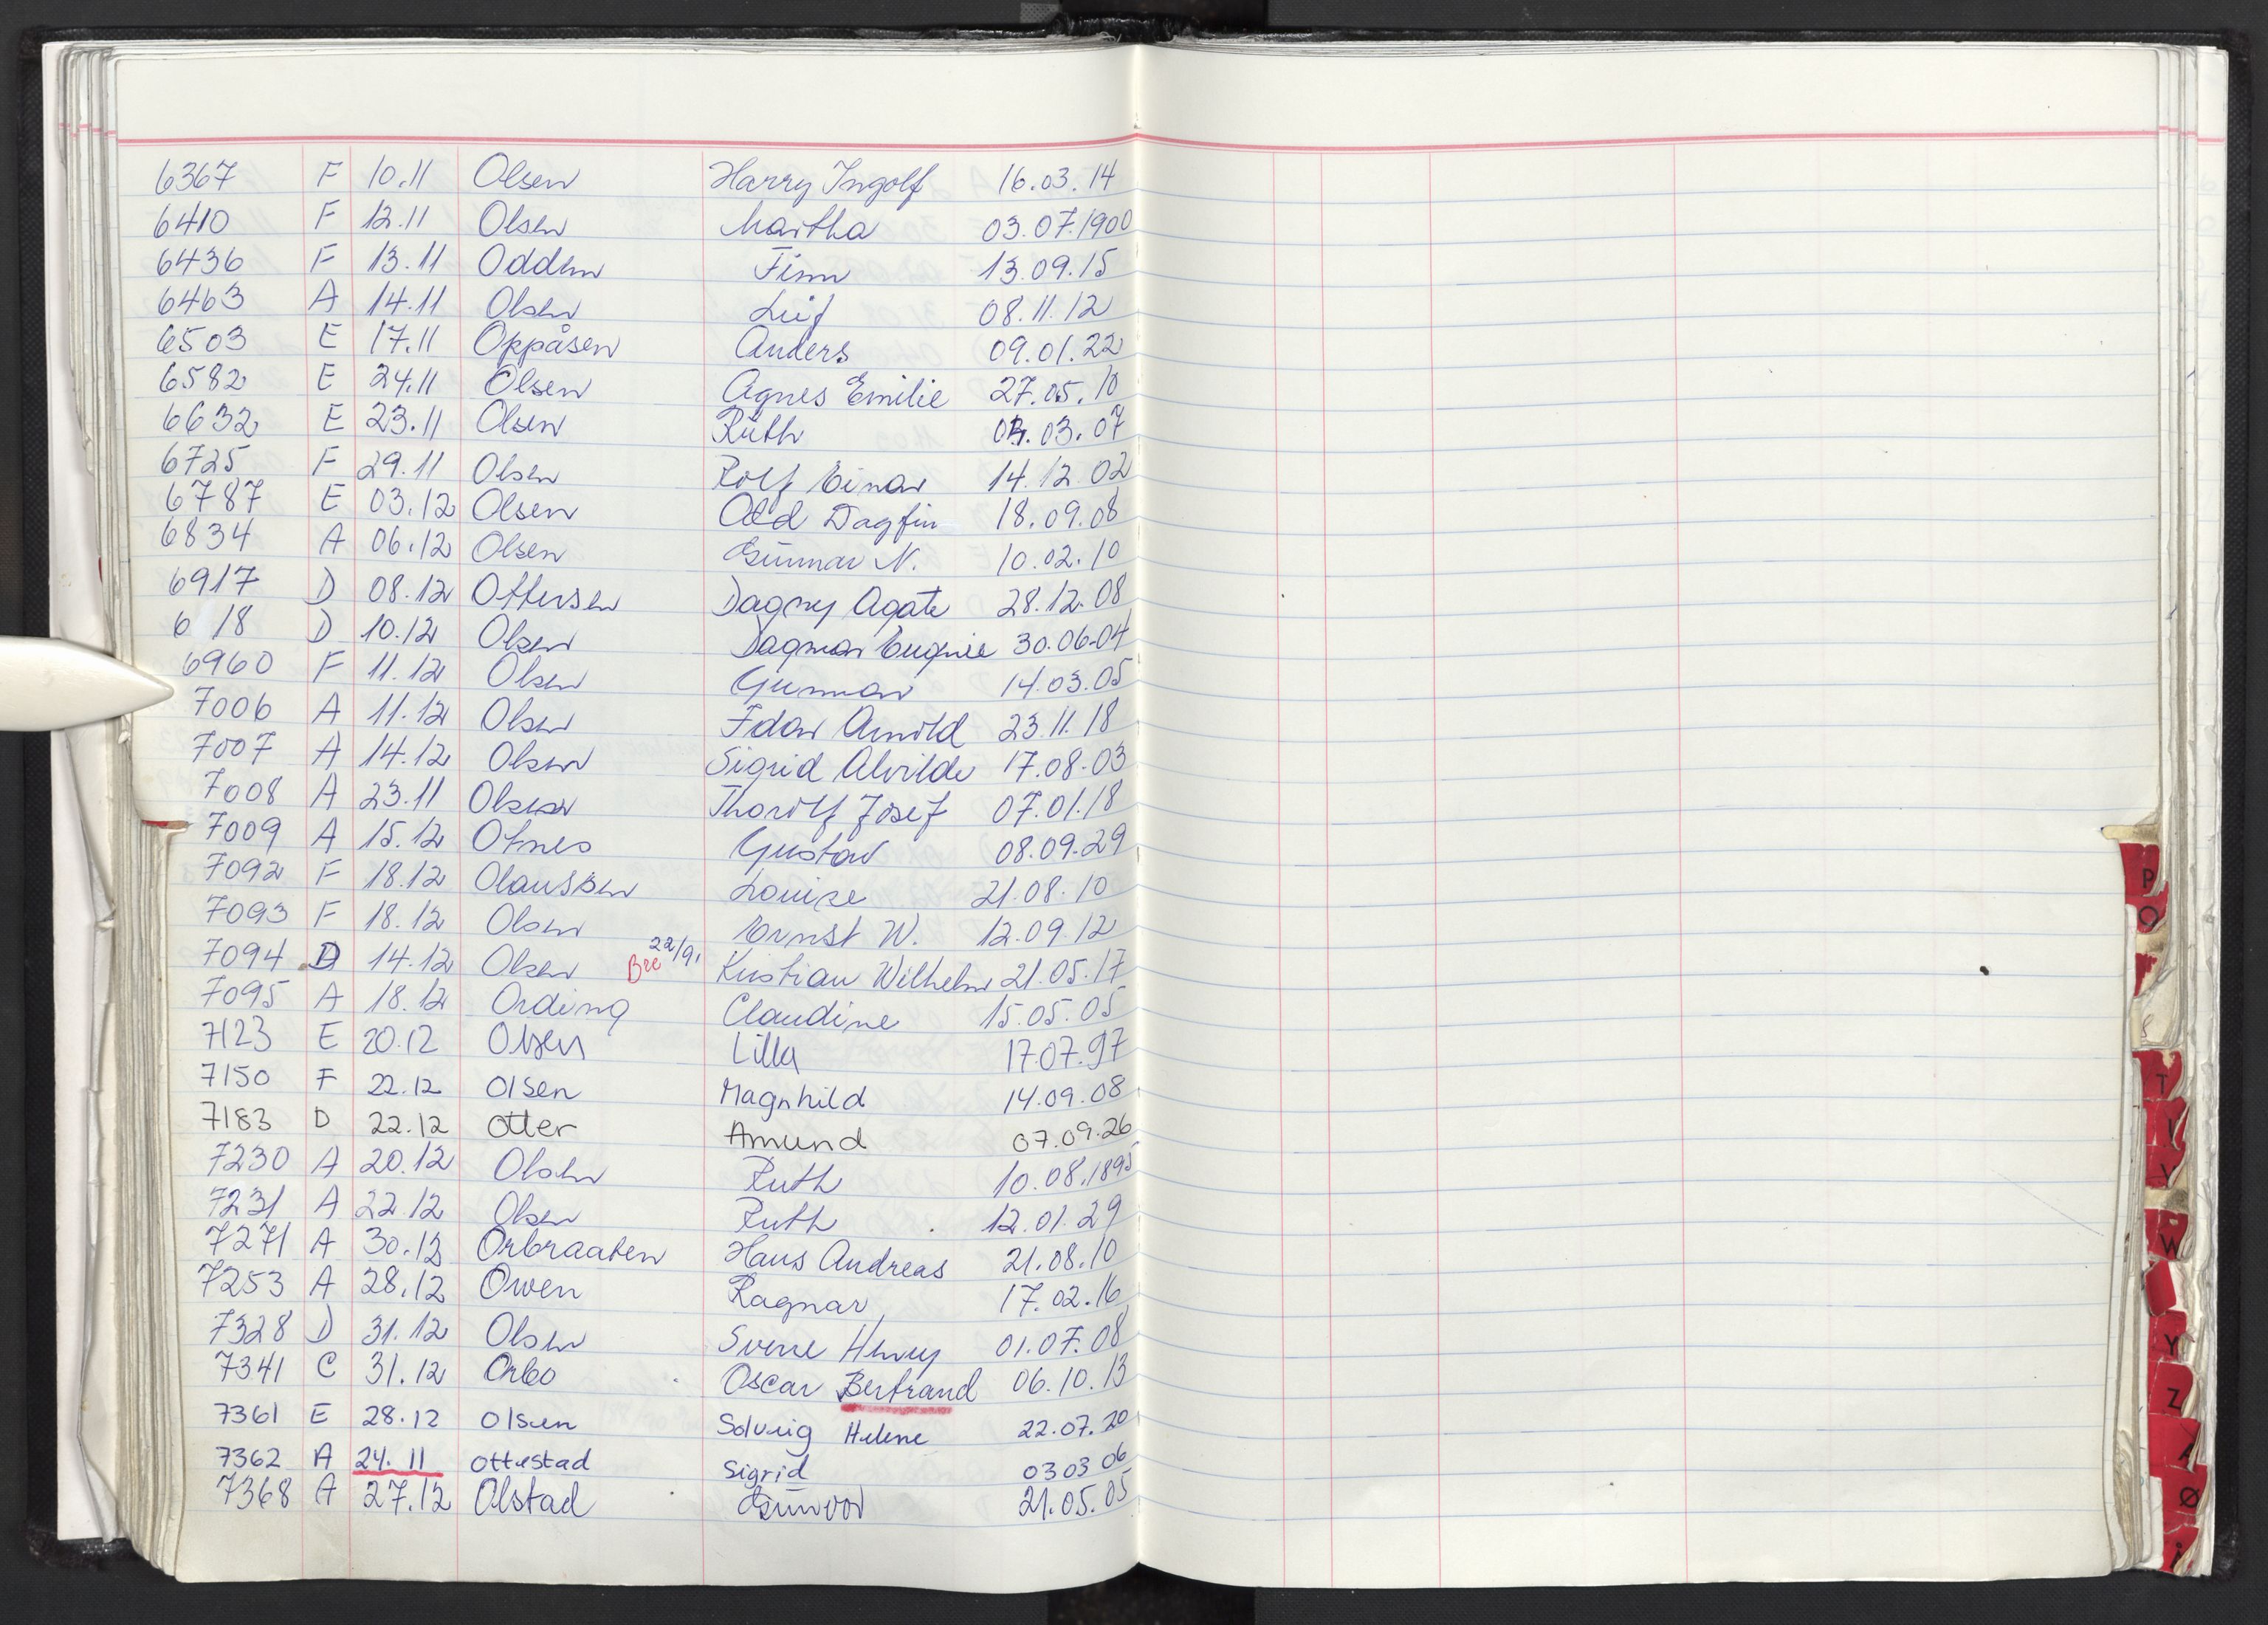 6367 F 10.11 Olsen Harry Ingolf 16.03.14
6410 F 12.11 Olsen Martha 03.07.1900
6436 F 13.11 Odden Finn 13.09.15
6463 A 14.11 Olsen Leif 08.11.12
6503 E 17.11 Oppåsen Anders 09.01.22
6582 E 24.11 Olsen Agnes Emilie 27.05.10
6632 E 23.11 Olsen Ruth 03.07
6725 F 29.11 Olsen Rolf Einar 14.12.02
6787 E 03.12 Olsen Odd Dagfin 18.09.08
6834 A 06.12 Olsen Gunnar N. 10.02.10
6917 D 08.12 Ottersen Dagny Agate 28.12.08
6 18 D 10.12 Olsen Dagmar Eugenie 30.06.04
6960 F 11.12 Olsen Gunnar 14.03.05
7006 A 11.12 Olsen Idar Arnold 23.11.18
7007 A 14.12 Olsen Sigrid Alvilde 17.08.03
7008 A 23.11 Olsen Thorolf Josef 07.01.18
7009 A 15.12 Otnes Gustav 08.09.29
7092 F 18.12 Olaussen Louise 21.08.10
7093 F 18.12 Olsen Ernst W. 12.09.12
7094 D 14.12 Olsen Bre 22/9. Kristian Wilhelm 21.05.17
7095 A 18.12 Ording Claudine 15.05.05
7123 E 20.12 Olsen Lilla 17.07.97
7150 F 22.12 Olsen Magnhild 14.09.08
7183 D 22.12 Otter Amund 07.09.26
7230 A 20.12 Olsen Ruth 10.08.1895
7231 A 22.12 Olsen Ruth 12.01.29
7271 A 30.12 Orbraaten Hans Andreas 21.08.10
7253 A 28.12 Owen Ragnar 17.02.16
7328 D 31.12 Olsen Sverre Henry 01.07.08
7341 C 31.12 Orbo Oscar Bertrand 06.10.13
7361 E 28.12 Olsen Solveig Helene 22.07.20
7362 A 24.11 Ottestad Sigrid 03 03 06
7368 A 27.12 Olstad Gunvor 21.05.05
P
T
V
W
Y
Z
Ø